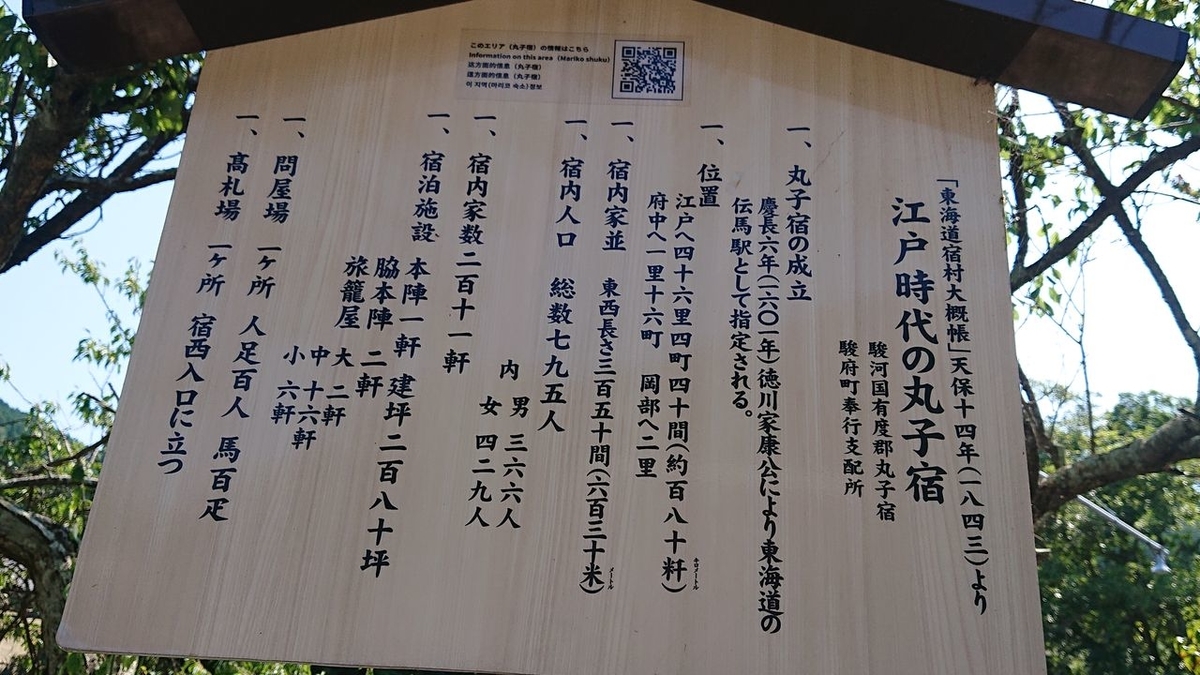 このエリア（丸子宿）の情報はこちら
Information on this area（Mariko shuku）
这方面的信息（丸子宿）
這方面的信息（丸子宿）
이 지역(마리코 숙소)정보
「東海道宿村大概帳」天保十四年(一八四三)より
江戸時代の丸子宿
駿河国有度郡丸子宿
駿府町奉行支配所
一、丸子宿の成立
慶長六年(一六〇一年)徳川家康公により東海道の
伝馬駅として指定される。
一、位置
江戸へ四十六里四町四十間(約百八十粁)
キロメートル
府中へ一里十六町 岡部へ二里
一、宿内家並 東西長さ三百五十間(六百三十米)
メートル
一、宿内人口 総数七九五人
内 男 三六六人
女 四二九人
一、宿内家数 二百十一軒
一、宿泊施設 本陣一軒 建坪二百八十坪
脇本陣 二軒
旅籠屋 大 二軒
中 十六軒
小 六軒
一、問屋場 一ヶ所 人足百人 馬百疋
一、高札場 一ヶ所 宿西入口に立つ